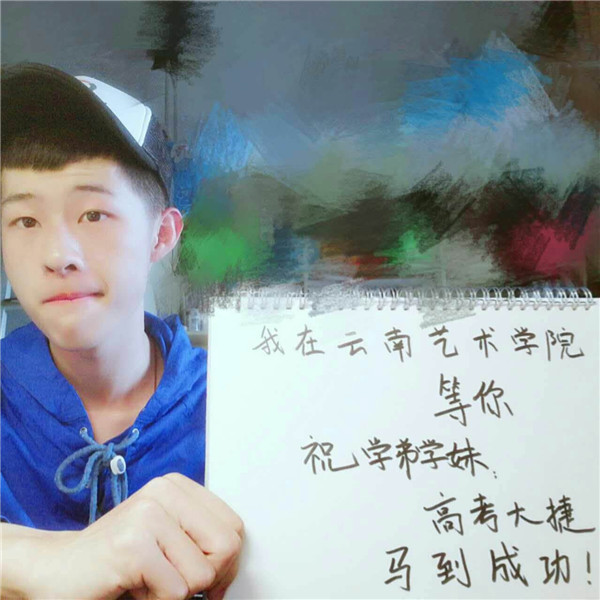 我在云南艺术学院
等你
祝学弟学妹:
高考大捷
马到成功!